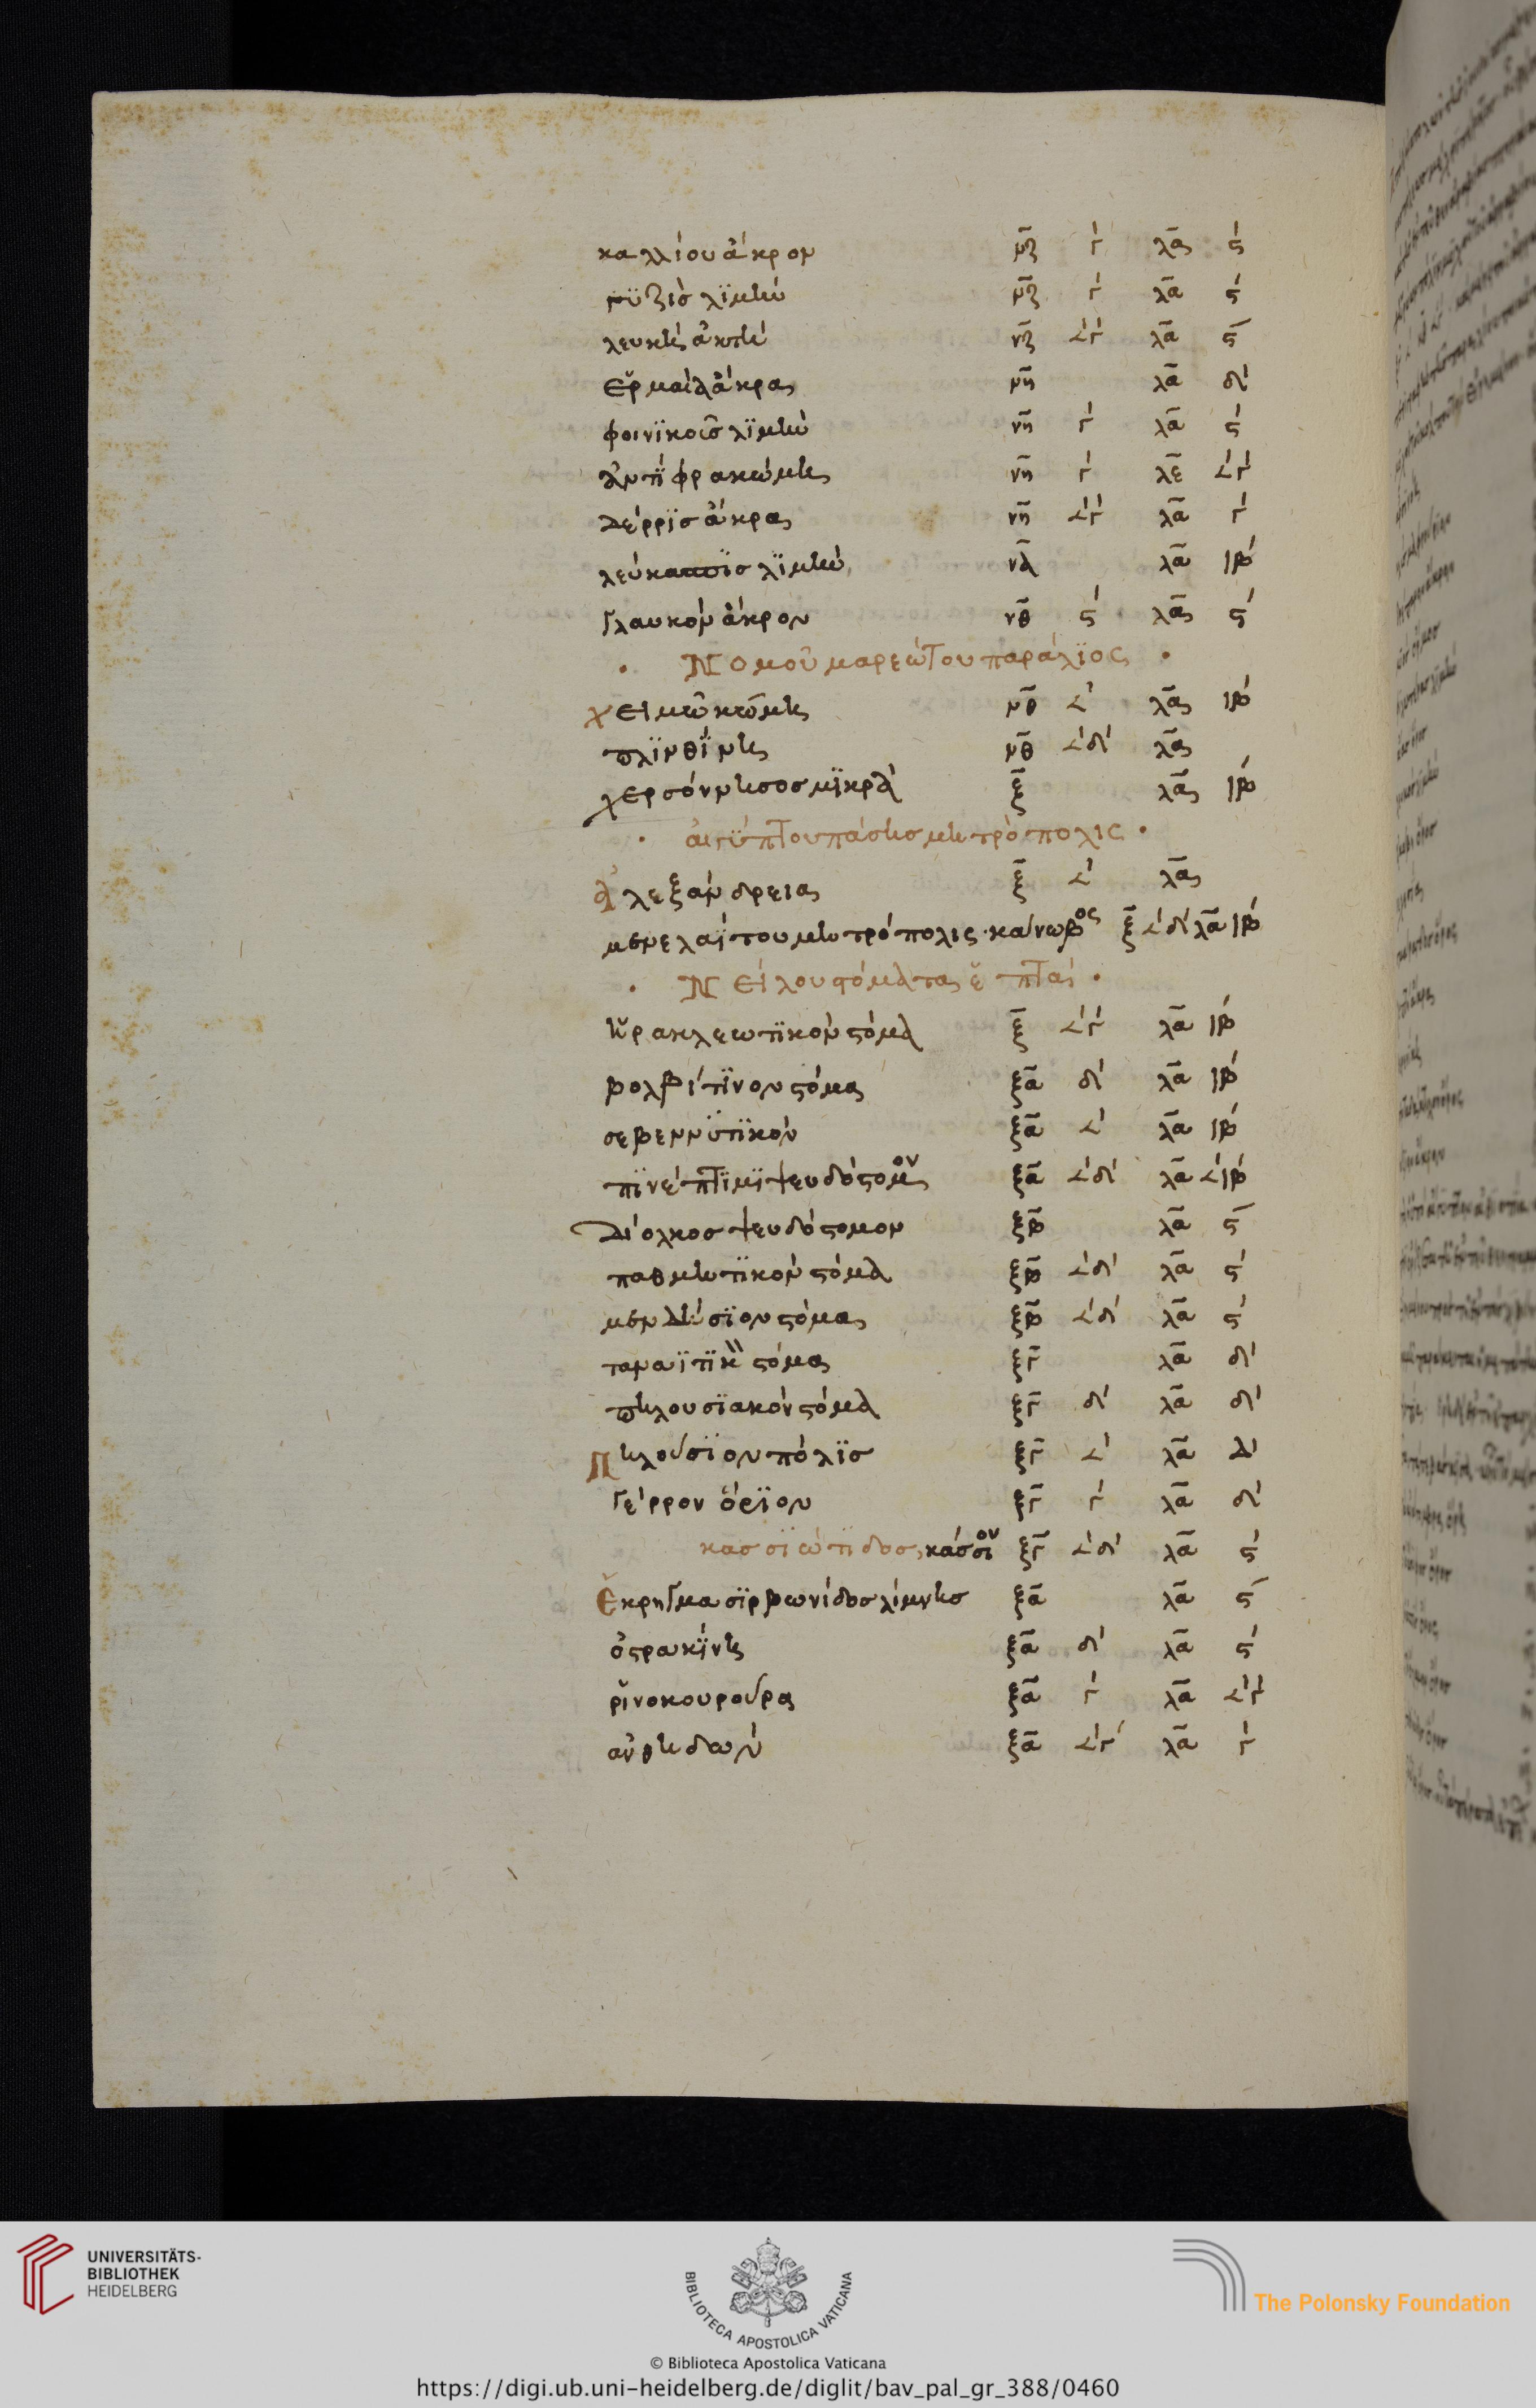 καλλίου ἄκρον νζ γ λα ς
πϋζισ λϊμὴν νζ γ λα ς
λευκὴ ἀκτὴ νζ 𐅵γ λα ς
ἑρμαία ἄκρα νη λα δ
φοινϊκοῦσ λϊμὴν νη γ λα ς
ἀντϊφρα κώμη νη γ λε 𐅵γ
δέρρϊσ ἄκρα νη 𐅵γ λα γ
λεύκασπϊσ λϊμὴν νδ λα ιβ
Γλαυκὸν ἄκρον νθ ς λα ς
· Νομοῦ μαρεώτου παράλϊος ·
χειμῶ κώμη νθ 𐅵 λα ιβ
πλϊνθΐνη νθ 𐅵δ λα
χερσόννησοσ μϊκρὰ ξ λα ιβ
· αἰγύπτου πάσησ μητρόπολις ·
ἀλεξάνδρεια ξ 𐅵 λα
μενελαΐτου μητρόπολις · κάνωβος ξ 𐅵δ λα ιβ
· Νείλου στόματα ἑπτά ·
ἡρακλεωτϊκὸν στόμα ξ 𐅵γ λα ιβ
βολβίτϊνον στόμα ξα δ λα ιβ
σεβεννϋτϊκὸν ξα 𐅵 λα ιβ
πϊνέπτϊμϊ ψευδόστομον ξα 𐅵δ λα 𐅵ιβ
Δίολκοσ ψευδόστομον ξβ λα ς
παθμητϊκὸν στόμα ξβ 𐅵δ λα ς
μενδήσϊον στόμα ξβ 𐅵δ λα ς
ταναϊτϊκὸν στόμα ξγ λα δ
πηλουσϊακὸν στόμα ξγ δ λα δ
Πηλούσϊον πόλϊσ ξγ 𐅵 λα δ
Γέρρον ὅρϊον ξγ γ λα δ
κασσϊώτϊδοσ, κάσσϊον ξγ 𐅵δ λα ς
ἔκρηγμα σϊρβωνίδοσ λίμνησ ξα λα ς
ὀστρακΐνη ξα δ λα ς
ῥϊνοκουρούρα ξα γ λα 𐅵γ
ἀνθηδὼν ξα 𐅵γ λα γ
UNIVERSITÄTS-
BIBLIOTHEK
HEIDELBERG
BIBLIOTECA APOSTOLICA VATICANA
The Polonsky Foundation
© Biblioteca Apostolica Vaticana
https://digi.ub.uni-heidelberg.de/diglit/bav_pal_gr_388/0460